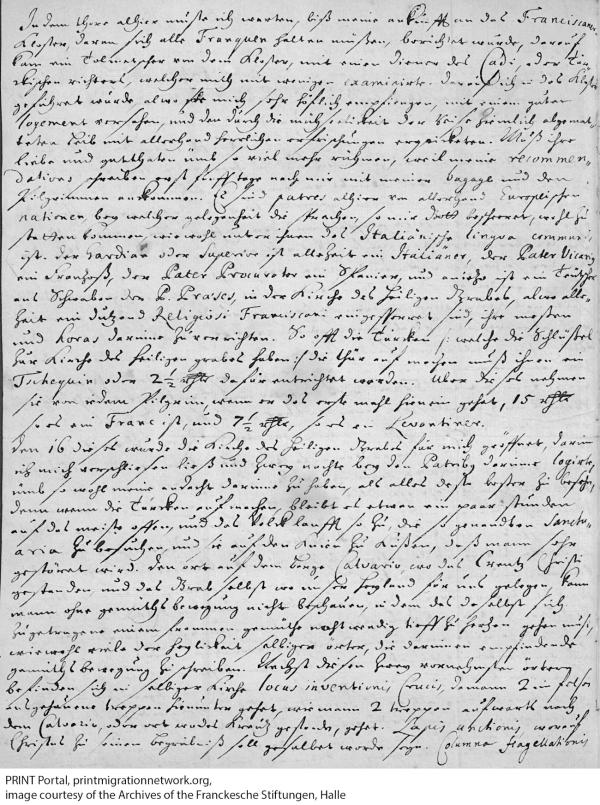 In dem thore alhier muste ich warten, biß meine ankunfft an das Franciscaner
Kloster, daran sich alle Franquen halten müßen, berichtet wurde, darauf
kam ein Dolmetscher von dem Kloster, mit einen diener des Cadi, oder Tür-
ckischen richters, welcher mich mit wenigen examinirte. darauf ich in das Kloster
geführet wurde, alwo sie mich sehr höflich empfiengen, mit einem guten
logement versehen, und den durch die reise ziemlich abgemat-
teten leib mit allerhand herrlichen erfrischungen erquicketen. Muß ihre
liebe und gutthaten umb so viel mehr rühmen, weil meine recommen-
dations schreiben erst fünff tage nach mir mit meiner bagage und den
Pilgrimmen ankommen. Es sind patres alhier von allerhand Europäischen
nationen, bey welcher gelegenheit die sprachen, so mir Gott bescheeret, wohl zu
statten kommen, wiewohl unter ihnen das Italiänische lingua communis
ist. der Gardian oder Superior ist allezeit ein Italiäner, der Pater Vicarius
ein Franzoß, der Pater Procurator ein Spanier, und anietzo ist ein Teutscher
aus Schwaben der P. Præses, in der Kirche des heiligen Grabes, alwo alle-
zeit ein dutzend Religiosi Franciscani eingesperret sind, ihre messen
und horas darinne zu verrichten. So offt die Türcken, welche die Schlüssel
zur Kirche des heiligen grabes haben, die thür auf machen, muß ihnen ein
Tschequin oder 2 1/2 rthlr dafür entrichtet werden. Über dieses nehmen
sie von iedem Pilgrim, wenn er das erste mahl hinein gehet, 15 rthlr
so es ein Franc ist, und 7 1/2 rthlr, so es ein Levantiner.
Den 16 dieses wurde die Kirche des heiligen Grabes für mich geöffnet, darin
ich mich verschließen ließ und zwey nachte bey den Patribus darinne logirte,
umb so wohl meine andacht darinne zu haben, als alles desto besser zu besehen,
denn wenn die Türcken auf machen, bleibt es etwan ein paar stunden
auf das meiste offen, und das Volck laufft so zu, die so genandten Sanctu-
aria zu besuchen, und sie auf den Knien zu küßen, daß mann sehr
gestöret wird. Den ort auf dem berge Calvario, wo das Creutz Christi
gestanden, und das Grab selbst wo unser Heyland für uns gelegen, kann
mann ohne gemüths bewegung nicht beschauen, in dem das daselbst sich
zugetragene einem frommen gemüthe nothwendig tieff zu hertzen gehen muß,
wiewohl viele der heyligkeit selbiger örter, die darinnen empfindende
gemüths bewegung zu schreiben. Nächst diesen zwey vornehmsten örtern
befinden sich in selbiger Kirche locus inventionis Crucis, da mann 2 in felsen
ausgehauene treppen hinunter gehet, wie mann 2 treppen aufwarts nach
dem Calvario, oder ort wo das Kreutz gestanden, gehet. Lapis unctionis, worauf
Christus zu seinem begräbniß soll gesalbet worden seyn. Columna flagellationis
PRINT Portal, printmigrationnetwork.org,
image courtesy of the Archives of the Franckesche Stiftungen, Halle